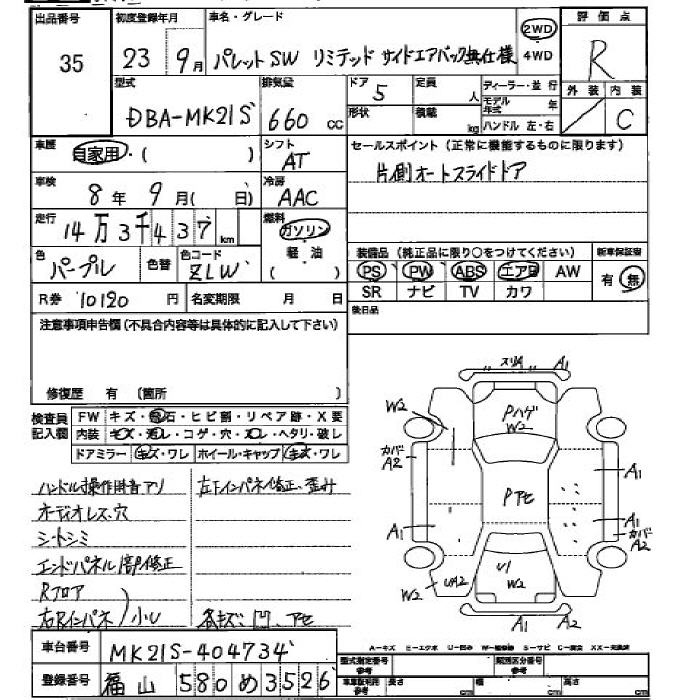 出品番号 35
初度登録年月 23年 9月
車名・グレード パレットSW リミテッド サイドエアバック無仕様
2WD
4WD
評価点 R
外装 内装 C
型式 DBA-MK21S
排気量 660 cc
ドア 5
形状
定員 人
積載 kg
ディーラー・並行
モデル年式 年
ハンドル 左・右
車歴 自家用・( )
シフト AT
セールスポイント(正常に機能するものに限ります)
片側オートスライドドア
車検 8年 9月( 日)
冷房 AAC
走行 14万3千437 km
燃料 ガソリン
軽・油
( )
色 パープル 色替 色コード ZLW
装備品(純正品に限り○をつけてください)
PS PW ABS エアB AW
SR ナビ TV カワ
新車保証書
有・無
R券 10120 円 名変期限 月 日
後日品
注意事項申告欄(不具合内容等は具体的に記入して下さい)
修復歴 有 〔箇所 〕
検査員記入欄
FW キズ・飛石・ヒビ割・リペア跡・X要
内装 キズ・汚レ・コゲ・穴・スレ・ヘタリ・破レ
ドアミラー キズ・ワレ ホイール・キャップ キズ・ワレ
ハンドル操作用音アリ
オーディオレス・穴
シートシミ
エンドパネル1部修正
Rフロア
右Rインパネ 小U
左Fインパネ修正、歪み
各キズ、凹、アセ
スリA A1
W2
Pハゲ
W2
カバーA2
A1
Pアセ
A1
A1
カバーA2
UA2
U1
W2
W2
A1 A2
A-キズ E-エクボ U-凹み W-補修跡 S-サビ C-腐食 XX-交換済
車台番号 MK21S-404734
登録番号 福山 580 め 3526
型式指定番号 参考
類別区分番号 参考
車車証利用 参考 長さ cm 幅 cm 高さ cm